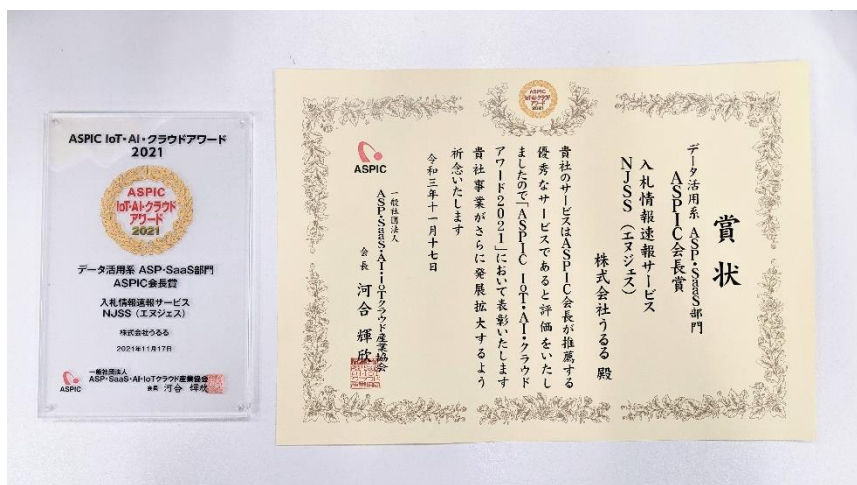 ASPIC IoT・AI・クラウドアワード
2021
ASPIC
IoT・AI・クラウド
アワード
2021
データ活用系 ASP・SaaS部門
ASPIC会長賞
入札情報速報サービス
NJSS（エヌジェス）
株式会社うるる
2021年11月17日
ASPIC
一般社団法人
ASP・SaaS・AI・IoTクラウド産業協会
会長 河合 輝欣
ASPIC
IoT・AI・クラウド
アワード
2021
賞状
データ活用系 ASP・SaaS部門
ASPIC会長賞
入札情報速報サービス
NJSS（エヌジェス）
株式会社うるる 殿
貴社のサービスはASPIC会長が推薦する
優秀なサービスであると評価をいたし
ましたので「ASPIC IoT・AI・クラウド
アワード2021」において表彰いたします
貴社事業がさらに発展拡大するよう
祈念いたします
令和三年十一月十七日
ASPIC
一般社団法人
ASP・SaaS・AI・IoTクラウド産業協会
会長 河合 輝欣